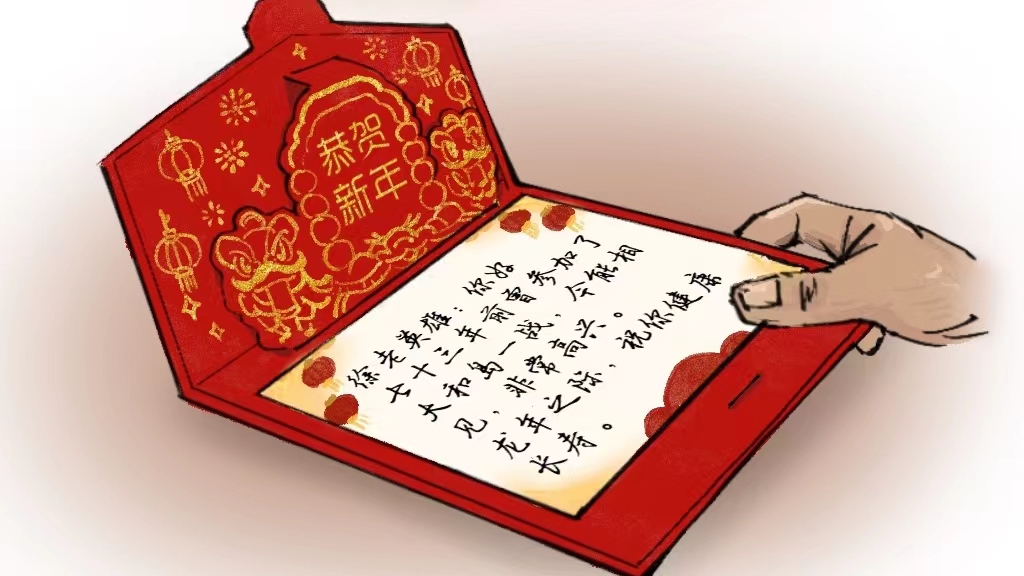 恭贺
新年
徐老英雄：你好
七十三年前曾参加了
大和岛一战，今能相
见，非常高兴。
龙年之际，祝你健康
长寿。